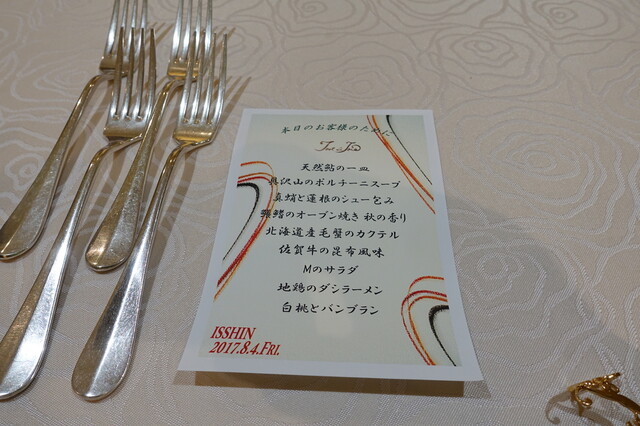 本日のお客様のために
天然鮎の一皿
具沢山のポルチーニスープ
真蛸と蓮根のシュー包み
のオーブン焼き 秋の香り
北海道産毛蟹のカクテル
佐賀牛の昆布風味
Mのサラダ
地鶏のダシラーメン
白桃とバンブラン
ISSHIN
2017.8.4.FRI.